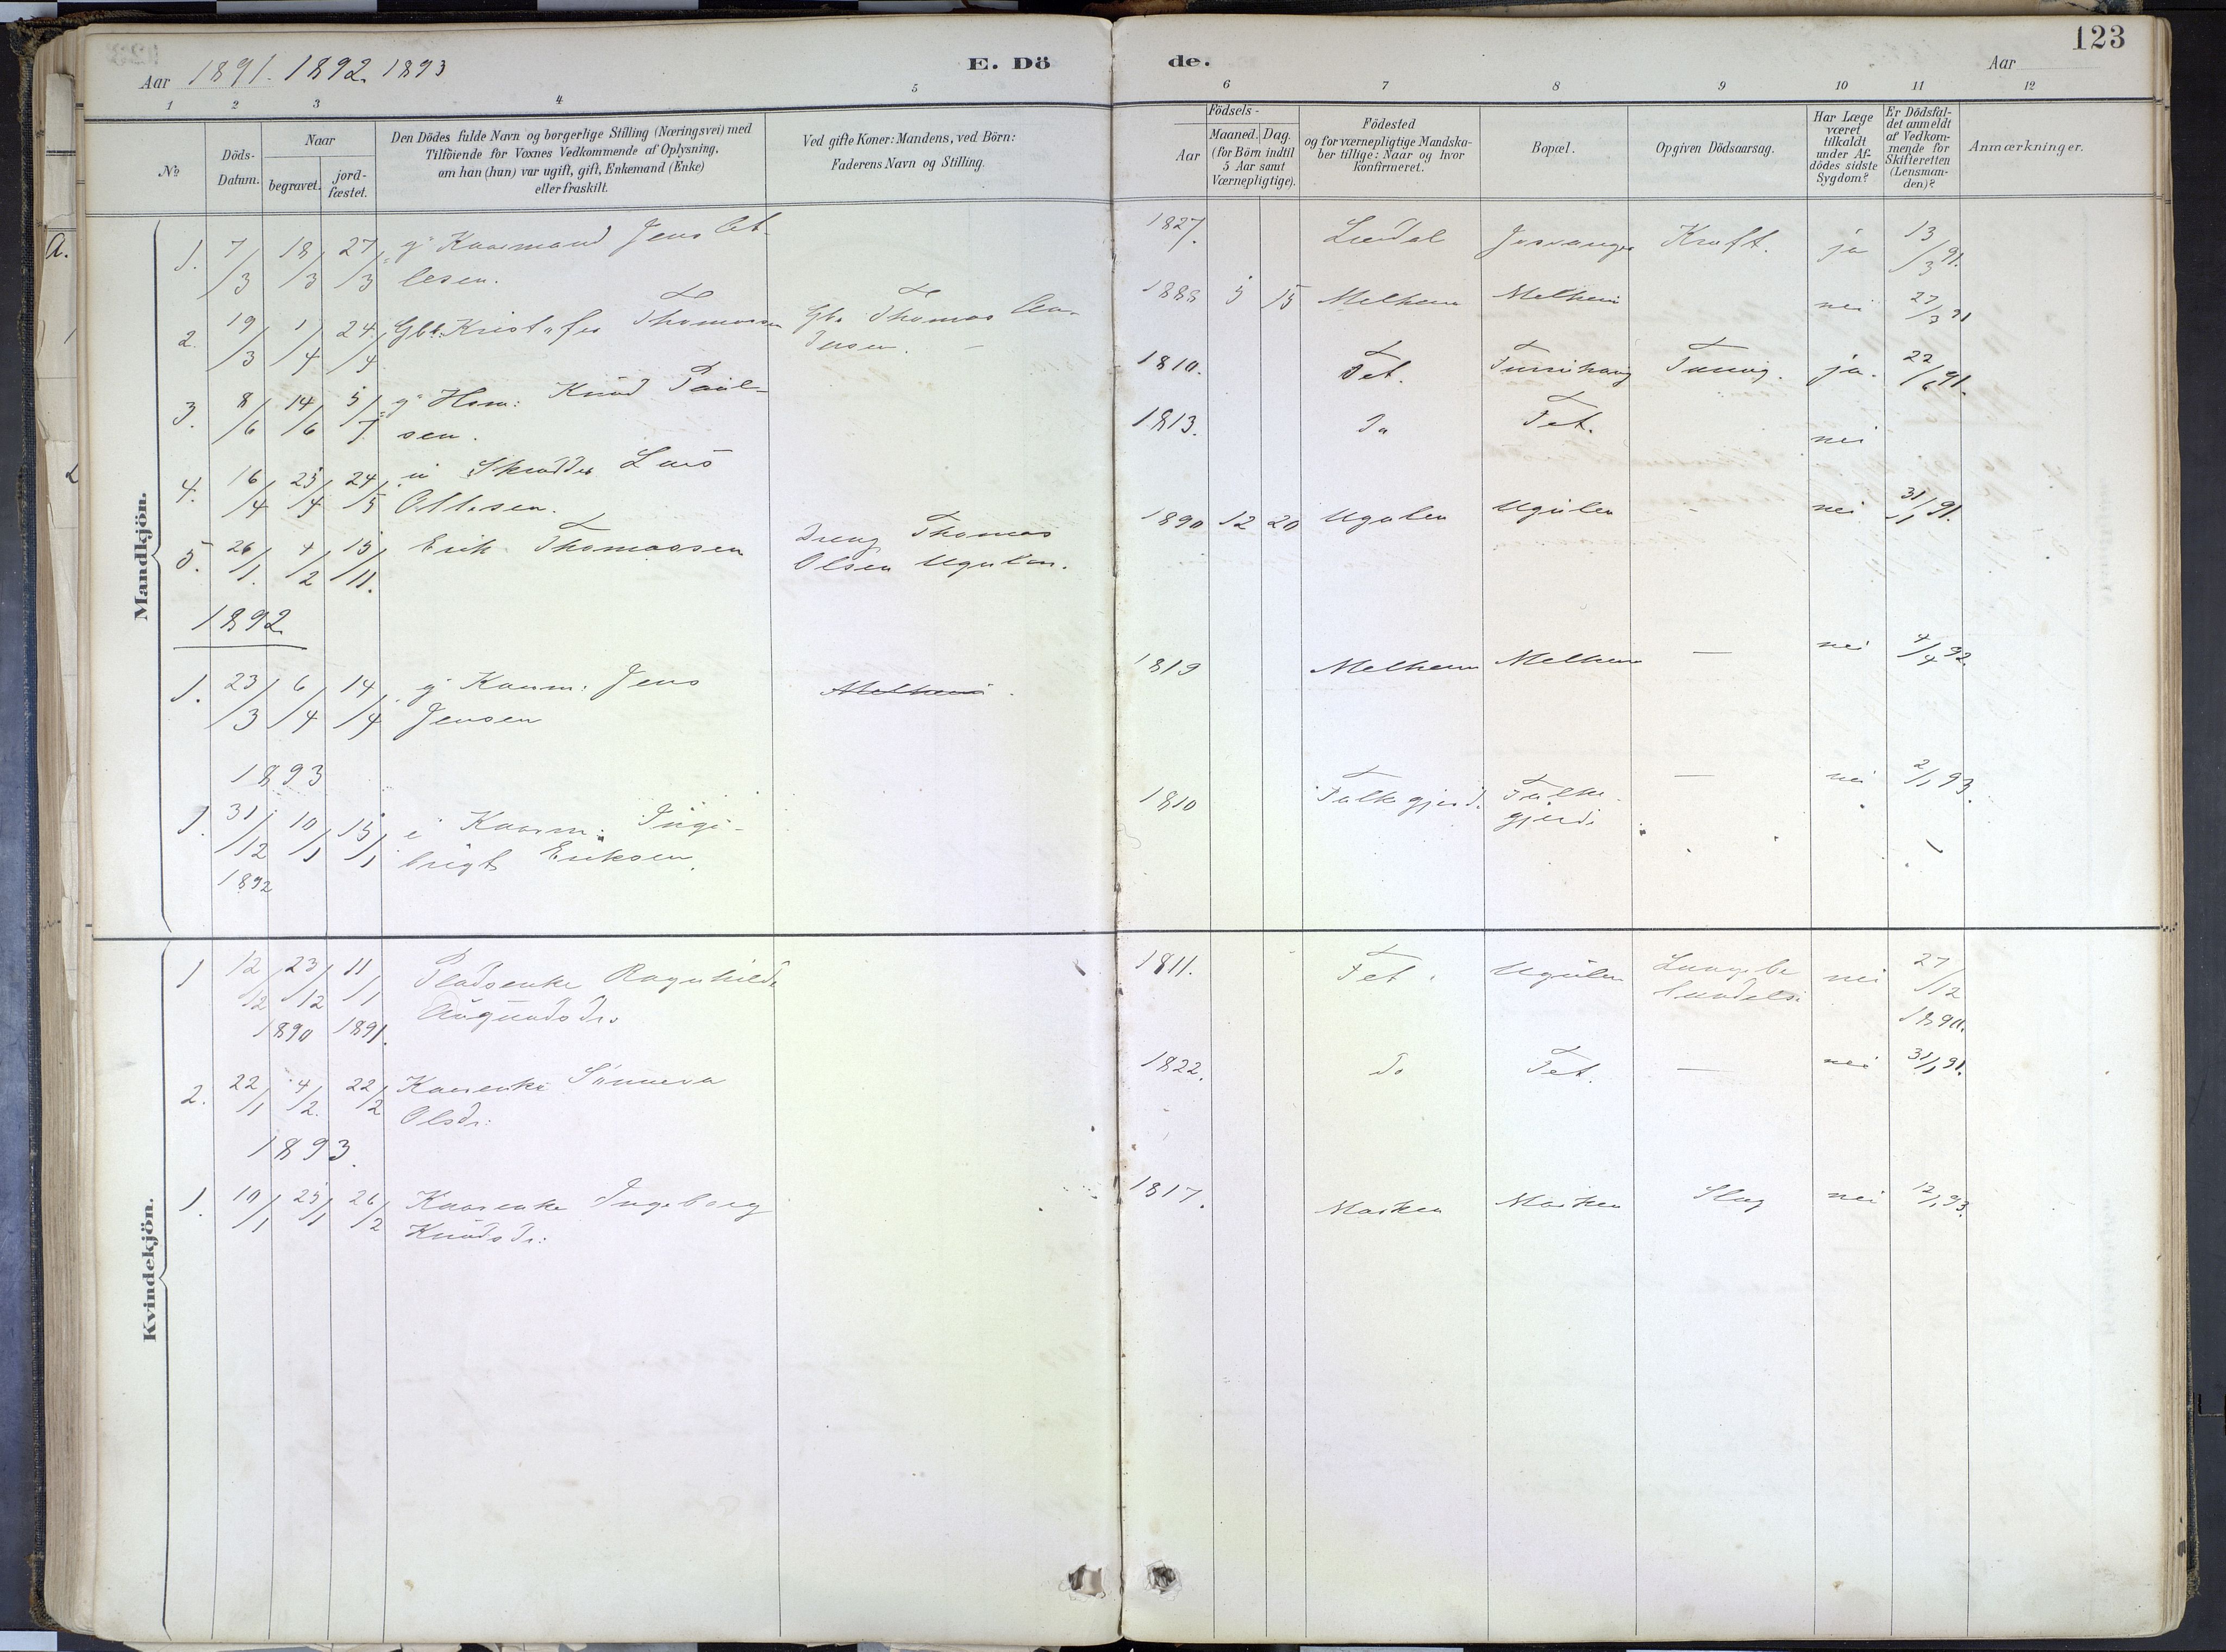 123
Aar 1891. 1892. 1893
E. Dö de.
Aar
1 2 3 4 5 6 7 8 9 10 11 12
No
Döds-Datum.
Naar
begravet.
jord-fæstet.
Den Dödes fulde Navn og borgerlige Stilling (Næringsvei) med
Tilföiende for Voxnes Vedkommende af Oplysning,
om han (hun) var ugift, gift, Enkemand (Enke)
eller fraskilt.
Ved gifte Koner: Mandens, ved Börn:
Faderens Navn og Stilling.
Födsels-
Aar
Maaned. Dag.
(for Börn indtil
5 Aar samt
Værnepligtige).
Födested
og for værnepligtige Mandska-
ber tillige: Naar og hvor
Konfirmeret.
Bopæl.
Opgiven Dödsaarsag.
Har Læge
været
tilkaldt
under Af-
dödes sidste
Sygdom?
Er Dödsfal-
det anmeldt
af Vedkom-
mende for
Skifteretten
(Lensman-
den)?
Anmærkninger.
Mandkjön.
1. 7/3 18/3 27/3 g Kaarmand Jens
lesen.
1827. Kræft. ja 13/3 91.
2. 19/3 1/4 24/4 Gbb. Kristofer Thomassen Gbr Thomas
1888 5 15 Melheim Melheim nei 27/3 91
3. 8/6 14/6 5/7 g Hsm: Knud Paul-
sen.
1810. Fet. Tæring. ja. 22/6 91.
4. 16/4 23/4 24/5 u Skrædder Lars
Ottesen.
1813. Do Fet. nei
5. 26/1. 4/2 15/11. Erik Thomassen Dreng Thomas
Olsen Ugulen.
1890 12 20 Ugulen Ugulen - nei 31/1 91.
1892.
1. 23/3 6/4 14/4 g Kaarm: Jens Melheim.
Jensen
1819 Melheim Melheim — nei 4/4 92.
1893
1. 31/12 10/1 15/1 e Kaarm: Inge-
brigt Eriksen.
1892
1810 Falkegjerd. Falke-
gjerd. — nei 2/1 93.
Kvindekjön.
1 12/12 23/12 11/1 Pladsenke Ragnhilde
Augundsdr.
1890 1891.
1811. Fet. Ugulen Lungebe-
tændelse nei 27/12
1890.
2. 22/1 4/2. 22/2 Kaarenke Sünneva
Olsdr:
1822. Do Fet. — nei 31/1 91.
1893.
1. 10/1 25/1 26/2 Kaarenke Ingeborg
Knudsdr:
1817. Slag nei 12/1 93.